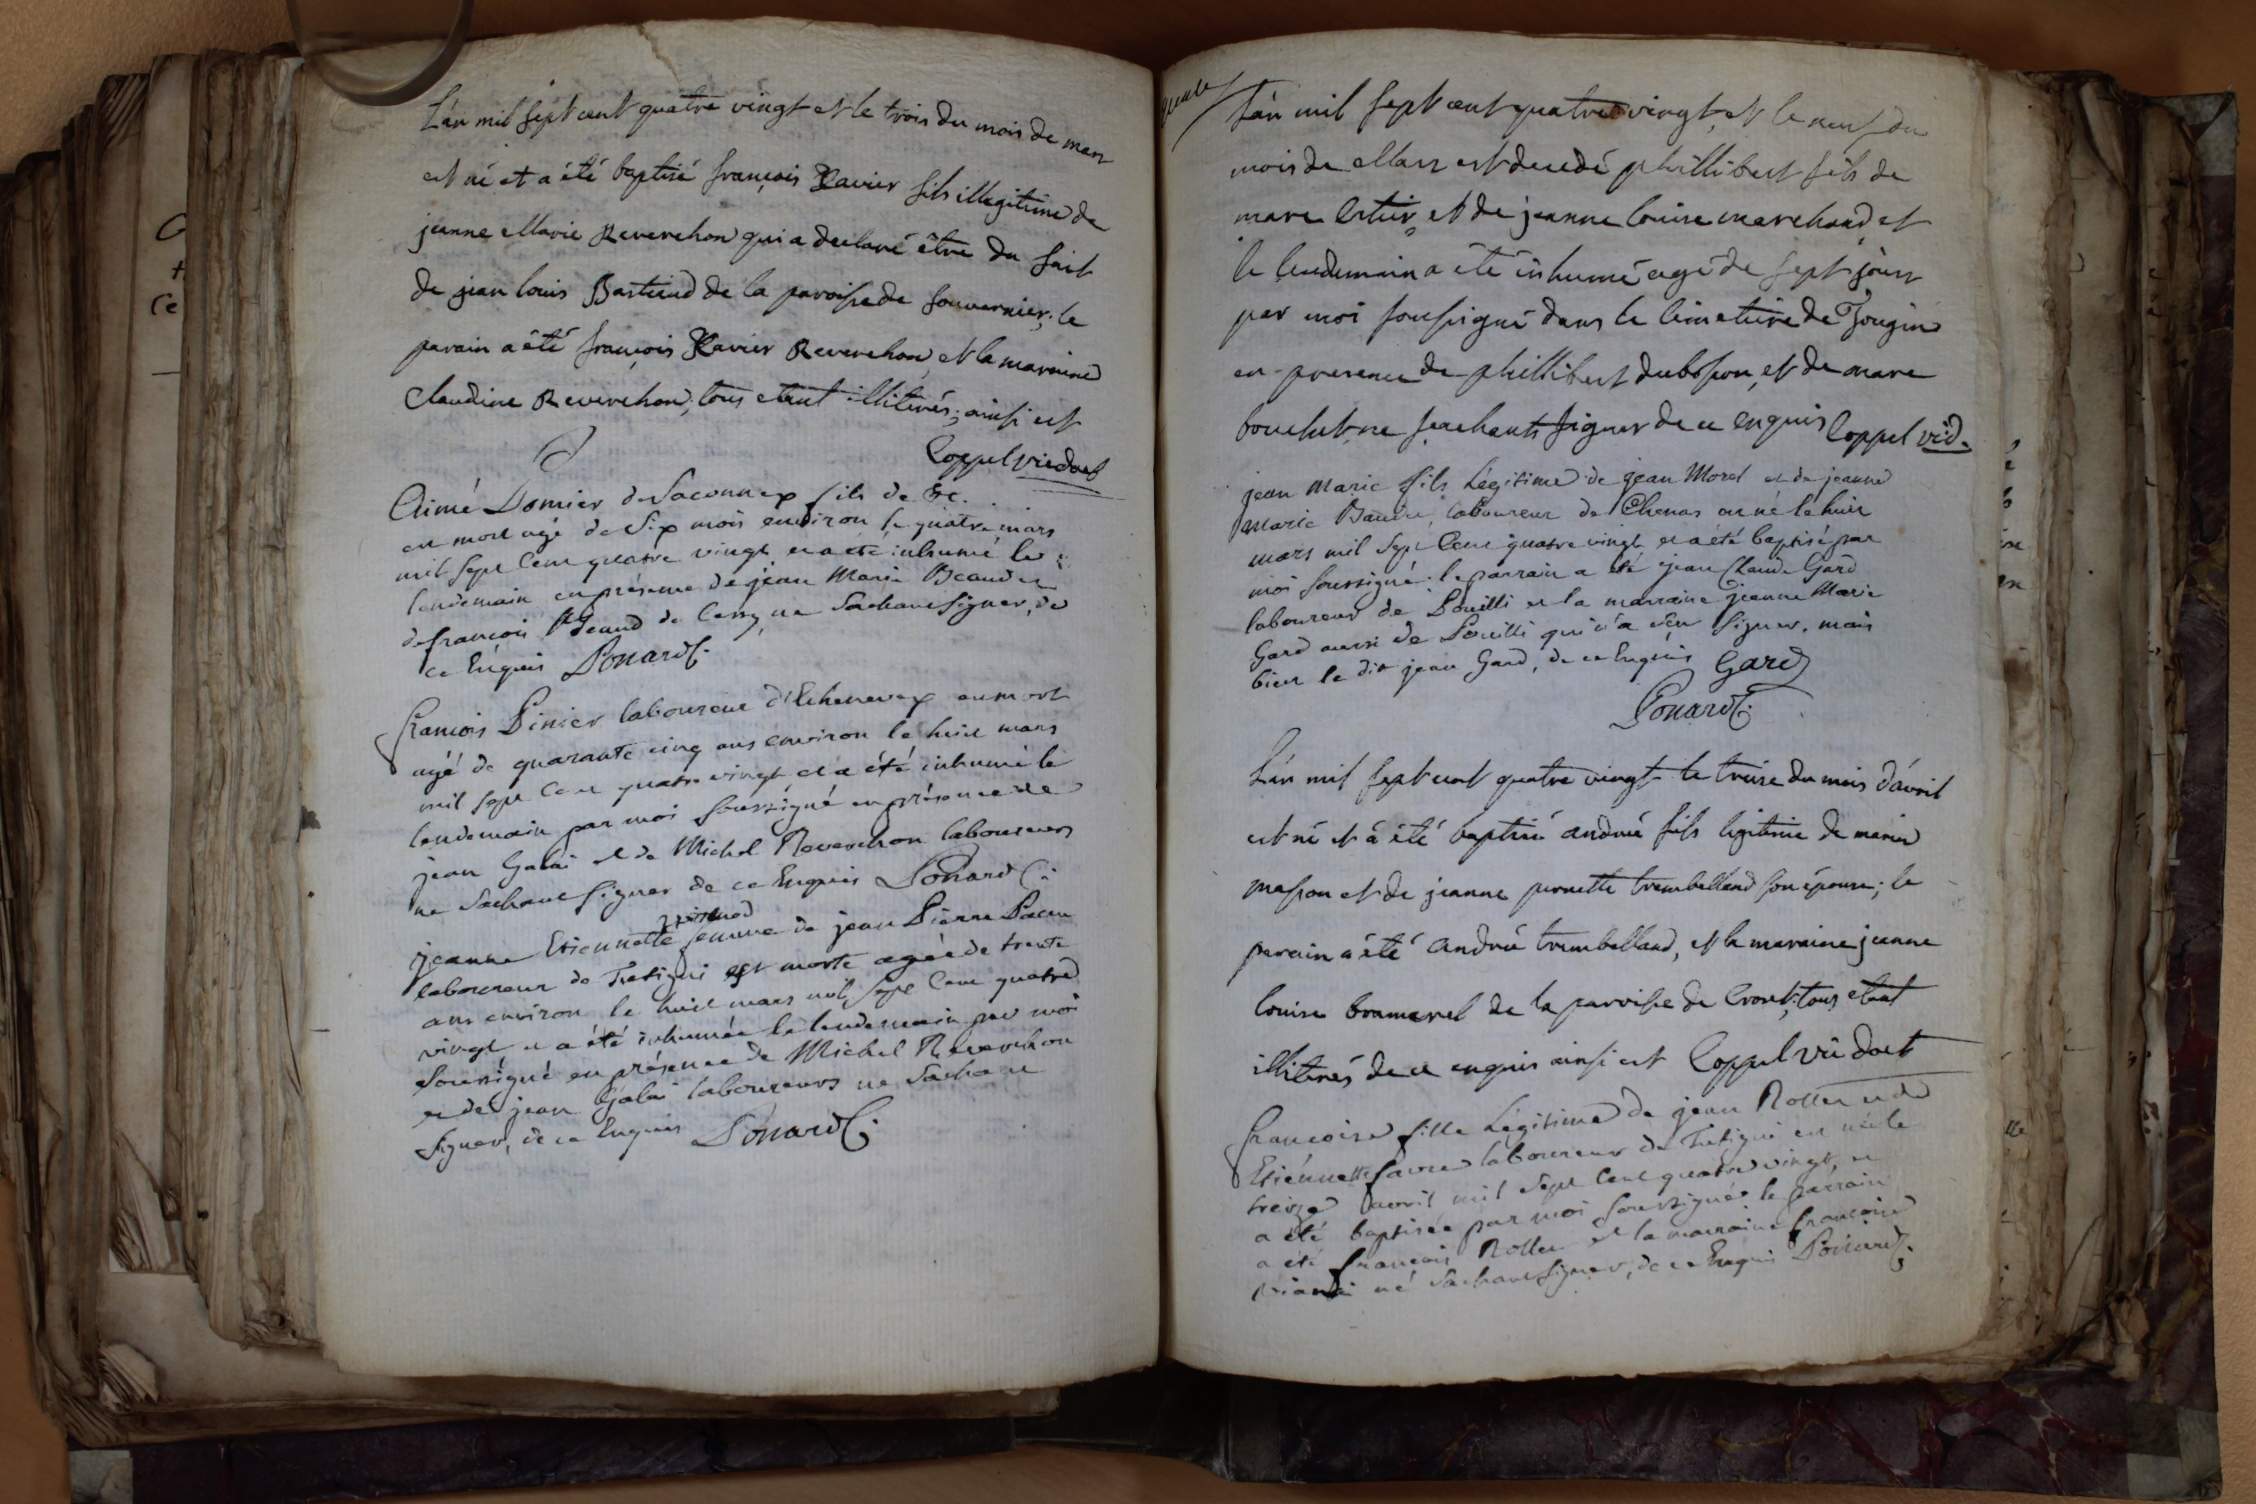 L'an mil sept cent quatre vingt et le trois du mois de mars
est né et a été baptisé françois Xavier fils illegitime de
jeanne Marie Reverchon qui a declaré être du fait
de jean louis Bastiend de la paroisse de Souvernier; le
parain a été françois Xavier Reverchon, et la maraine
Claudine Reverchon; tous etant illiterés; ainsi est
Coppel
Aimé Domier de Saconnex fils de &c.
est mort agé de Six mois environ le quatre mars
mil sept Cent quatre vingt et a été inhumé le
lendemain en présence de jean Marie Beaud et
de françois Beaud de Cessy ne Sachant Signer, de
ce Enquis Ponard C.
françois Pinier laboureur d'Echenevex est mort
agé de quarante cinq ans environ le huit mars
mil sept Cent quatre vingt et a été inhumé le
lendemain par moi Soussigné en présence de
jean Galai et de Michel Reverchon laboureurs
ne Sachant Signer de ce Enquis Ponard C.
jeanne Etiennette femme de jean Pierre
laboureur de Tretigni est morte agée de trente
ans environ le huit mars mil sept Cent quatre
vingt et a été inhumée le lendemain par moi
Soussigné en présence de Michel Reverchon
et de jean Galai laboureurs ne Sachant
Signer, de ce Enquis Ponard C.
L'an mil sept cent quatre vingt, et le neuf du
mois de Mars est decedé phillibert fils de
marc et de jeanne louise marchand et
le lendemain a été inhumé agé de sept jours
par moi soussigné dans le cimetiere de Tougin
en presence de phillibert dubosson, et de marc
bouchet ne sachants signer de ce enquis Coppel
jean Marie fils Légitime de jean Morel et de jeanne
Marie laboureur de Chenas est né le huit
mars mil sept Cent quatre vingt et a été baptisé par
moi Soussigné; le parrain a été jean Claude Gard
laboureur de Pouilli et la marraine jeanne Marie
Gard aussi de Pouilli qui n'a Sçu Signer, mais
bien le dit jean Gard, de ce Enquis Gard
Ponard C.
L'an mil sept cent quatre vingt le treise du mois d'avril
est né et a été baptisé andré fils legitime de marin
masson et de jeanne pernette trembelland son épouse; le
parain a été andré trembelland, et la maraine jeanne
louise bramerel de la paroisse de Crozet; tous etant
illiterés de ce enquis ainsi est Coppel
françoise fille Légitime de jean Rollet et de
Etiennette favre laboureur de Tretigni est née le
treize avril mil Sept Cent quatre vingt, et
a été baptisée par moi Soussigné; le parrain
a été françois Rollet et la marraine françoise
ne Sachant Signer, de ce Enquis Ponard C.